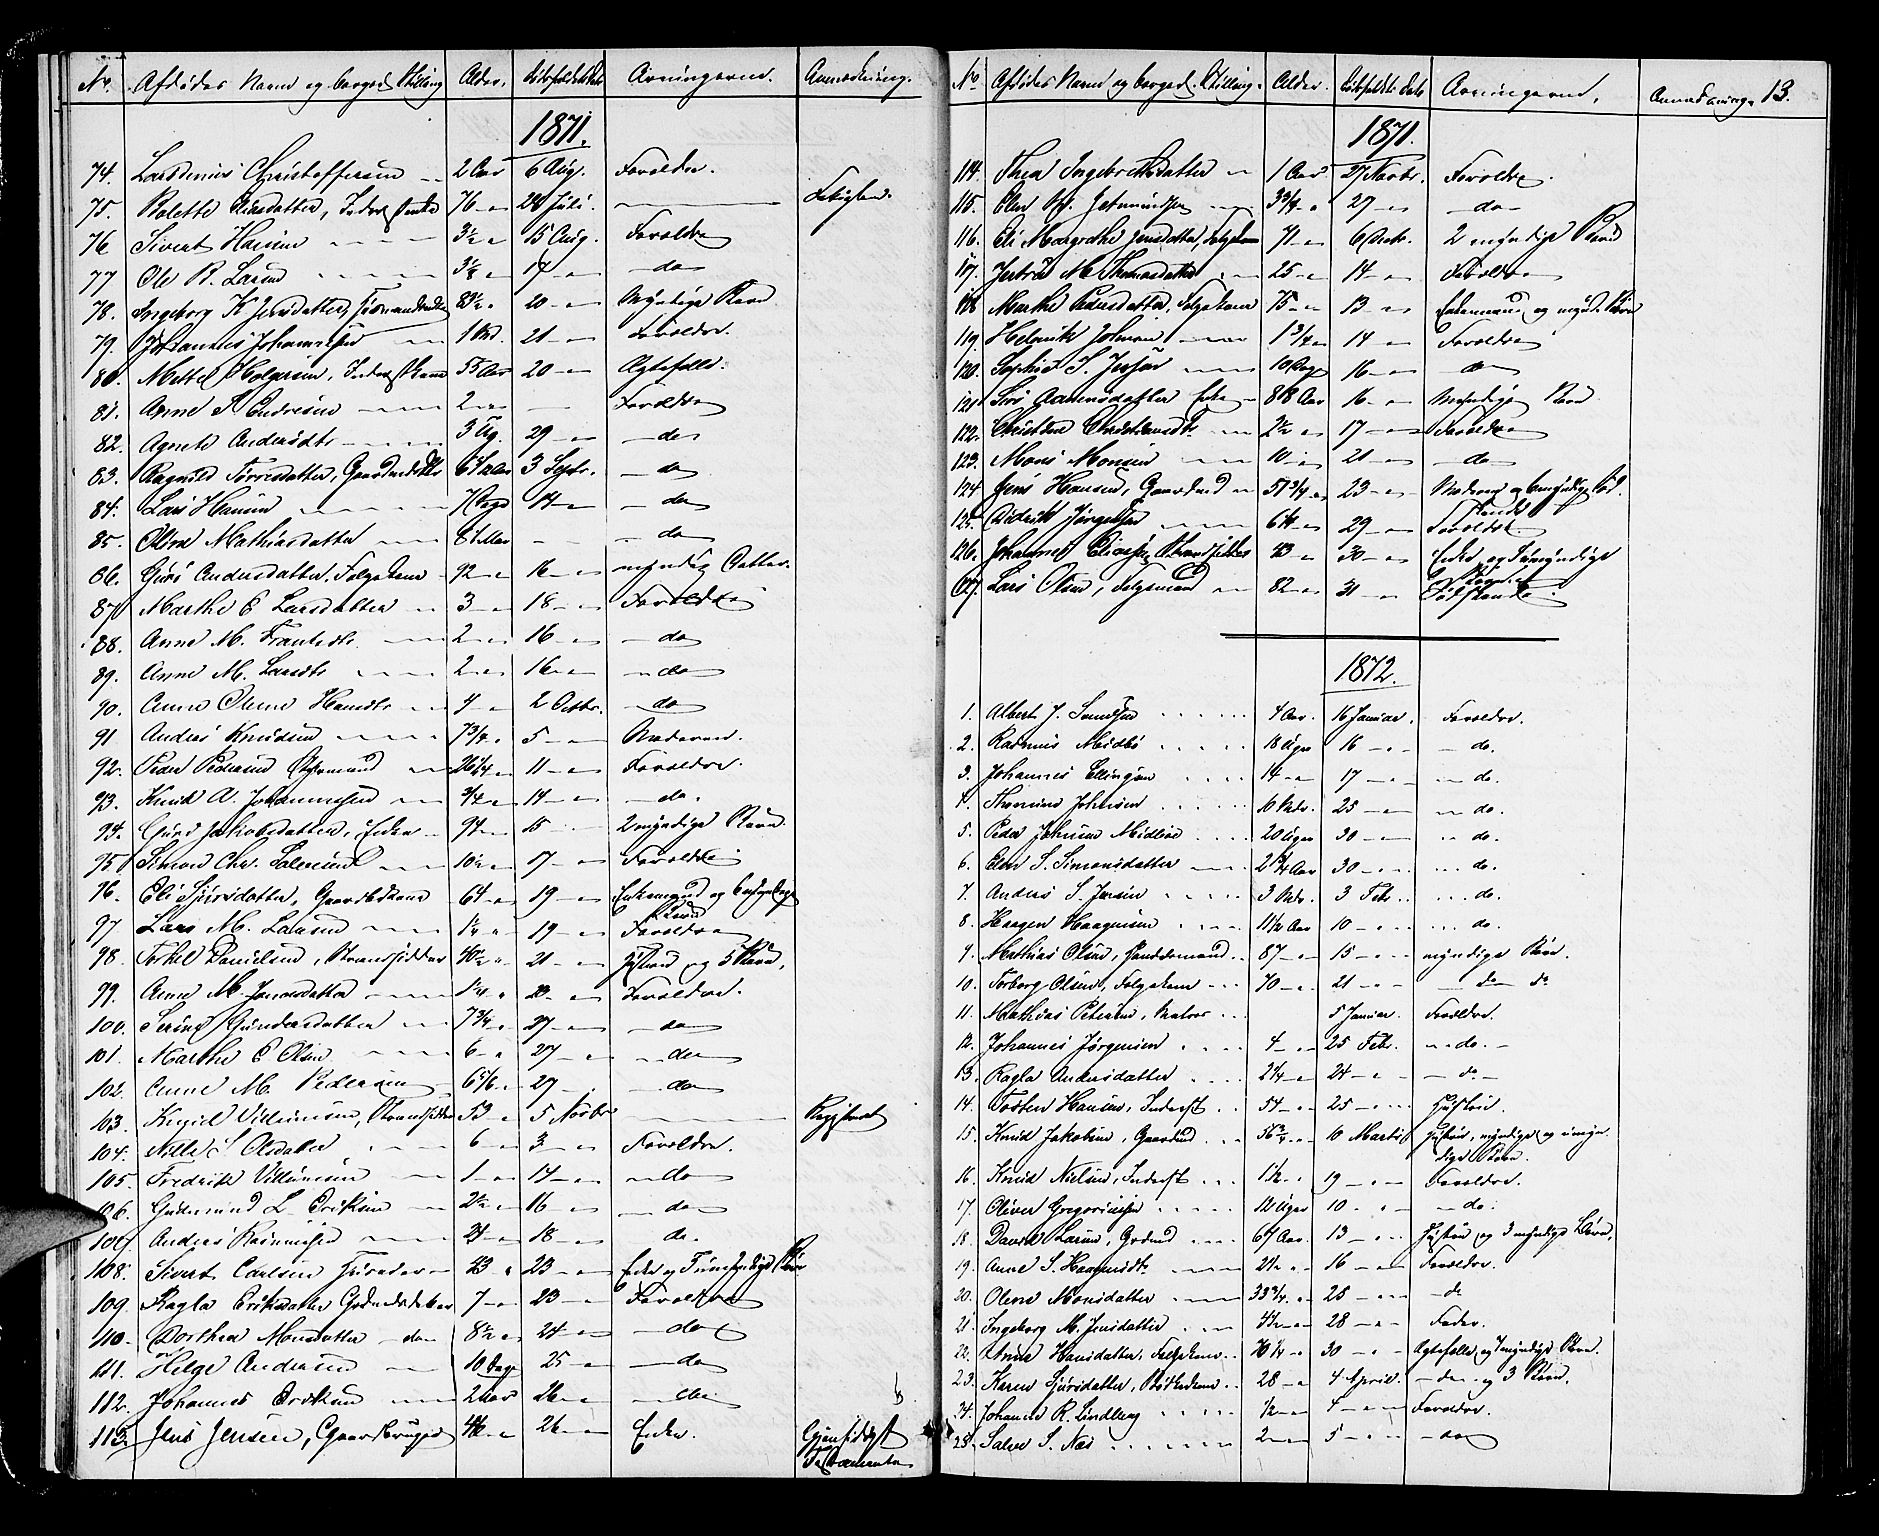 No. Afdødes Navn og borgerl. Stilling Alder. Dødsfaldets Dato Arvingerne. Anmærkning.
1871.
74. Larsdenius Christoffersen 2 Aar 6 Aug. Forældre.
75. Bolette Eliasdatter, Inderst Enke 76 - 28 Juli.
76 Sivert Hansen 3½ - 15 Aug. Forældre
77 Ole R. Larsen 3⅛ - 17 - do
78. Ingeborg K. Jensdatter, 83½ - 20 - Myndige Børn
79. Johannes Johannesen 1 21 - Forældre.
80. Mette Holgersen, Inderstkone 55 Aar 20 - Ægtefælle.
81. Anne A Endresen 2 - Forældre
82. Agnete Andersdtr. 3 Ug. 29 - do
83. Ragnild Torrisdatter, 3 Septr. - do
84. Lars Hansen 7 Dage 14 - do
85. Oline Mathiasdatter - do
86. Guri Andersdatter, Folgekone 92 - 16 - myndig Datter.
87 Marthe E Larsdatter 3 - 18 - Forældre
88. Anne M. Frantsdtr. 2 - 16 - do
89. Anne M. Larsdtr 2 - 16 - do
90. Anne Oline Hansdtr 4 - 2 Octbr. - do
91 Anders Knudsen 7¾ - 5 - Moderen.
92. Peder Pedersen 26¼ - 11 - Forældre.
93. Knud A. Johannesen ¾ - 14 - do.
94. Guri Jakobsdatter, Enke 94 - 15 2 myndige Børn.
95. Simon Chr. Salvesen 10½ - 17 - Forældre
96. Eli Sjursdatter, Gaardbrkone 64 - 19 - Enkemand og
Børn
97 Lars M. Larsen 1½ - 19 - Forældre
98. Torkel Danielsen, Strandsidder 40½ - 21 - Hustru og 5 Børn,
99. Anne M. Jonasdatter 1¼ - Forældre.
100. Serine Gundersdatter 7¾ - 27 - do
101. Marthe E Olsen 6 - 27 - do
102. Anne M. Pedersen 6 5/6 - 27 - do
103. Vilhelmsen, Strandsidder 53 - 5 Novbr Registreret
104. Nille S Olsdatter 6 - 3 - Forældre.
105. Fredrik Villumsen 1 - 14 - do
106. Gudmund L Eriksen 2½ - 16 - do
107 Anders Rasmussen 18 - do.
108. Sivert Carlsen 43 - 23 - Enke og Børn
109. Ragla Eriksdatter 7 - 23 - Forældre
110. Dorthea Monsdatter - do 8½ - 24 - do
111. Helge Andersen 10 Dage 25 - do
112. Johannes Eriksen 2 Aar 26 - do
113. Jens Jensen, Gaardbruger 26 - Enke. Gjensidigt
Testamente
No Afdødes Navn og borgerl. Stilling. Alder. Dødsfaldets Dato Arvingerne. Anmærkninge 13.
1871.
114. Thea Ingebretsdatter 1 Aar 27 Novbr. Forældre.
115. 3¾ - 27 - do
116. Eli Margrethe Jensdatter, Folgekone 71 - 6 Decbr. 2 myndige Børn
117. Jertrue M. Thomasdatter 25 - 14 - Forældre
118 Marthe Pedersdatter, Folgekone 75 - 13 - Enkemand og mynd. Børn
119. Helmik Johnsen 1¾ - 14 - Forældre
120. Sophie S. 10 Dage 16 - do
121 Siri Aamundsdatter Enke 88 Aar 16 - Myndige Børn.
122. Christine Christiansdtr. 2½ - 17 - Forældre
123. Mons Monsen 10 - 21 - do
124. Jens Hansen, Gaardmd 57¾ - 23 - Moderen og
125. Didrik Jørgensen 6¼ - 29 - Forældre
126. Johannes Strandsidder 43 - 30 - Enke og Umyndige
127. Lars Olsen, Folgemand 82 - 31 - Søskende
1872.
1. Albert J. Svendsen 4 Aar. 16 Januar. Forældre.
2. Rasmus Midbø 18 Uger 16 - do.
3. Johannes Ellingsen 14 - 17 - do.
4. Thomine Johnsen 10 25 - do.
5. Peder Johnsen Midbøe 20 Uger 30 - do.
6. Elen S. Simonsdatter 2¾ Aar 30 - do.
7. Anders S. Jensen 3 3 Febr. do.
8. Haagen Haagensen 11½ Aar 10 - do.
9. Mathias Olsen, Handelsmand 87 - 15 - myndige Børn.
10. Torborg Olsen, Folgekone 70 - 21 - do do
11. Mathias Petersen, Matros 5 Januar. Forældre.
12. Johannes Jørgensen 4 - 25 Febr. do.
13. Ragla Andersdatter 2¼ - 24 - do
14. Torsten Hansen, Inderst 54 - 25 - Hustru.
15. Knud Jakobsen, Gaardmd 56¾ - 10 Marts Hustru, myndige og umyn-
dige Børn.
16. Knud Nielsen, Inderst 1½ - 19 - Forældre.
17. Oliver Gregoriussen 12 Uger 10 - do.
18 David Larsen, Grdmd 67 Aar. 13 - Hustru og 3 myndige Børn.
19. Anne S. Haagensdtr. 2½ - 16 - Forældre.
20. Oline Monsdatter 33¾ - 25 - do
21. Ingeborg M. Jensdatter 4½ - 28 - Fader.
22. Anne Hansdatter, Folgekone 70¼ - 30 - Ægtefælle og myndige Børn.
23. Karen Sjursdatter, 28 - 4 April. - do - og 3 Børn.
24. Johanne R. Lindberg ½ - 4 - Forældre.
25. Salve S. Næs 2 - 5 - do